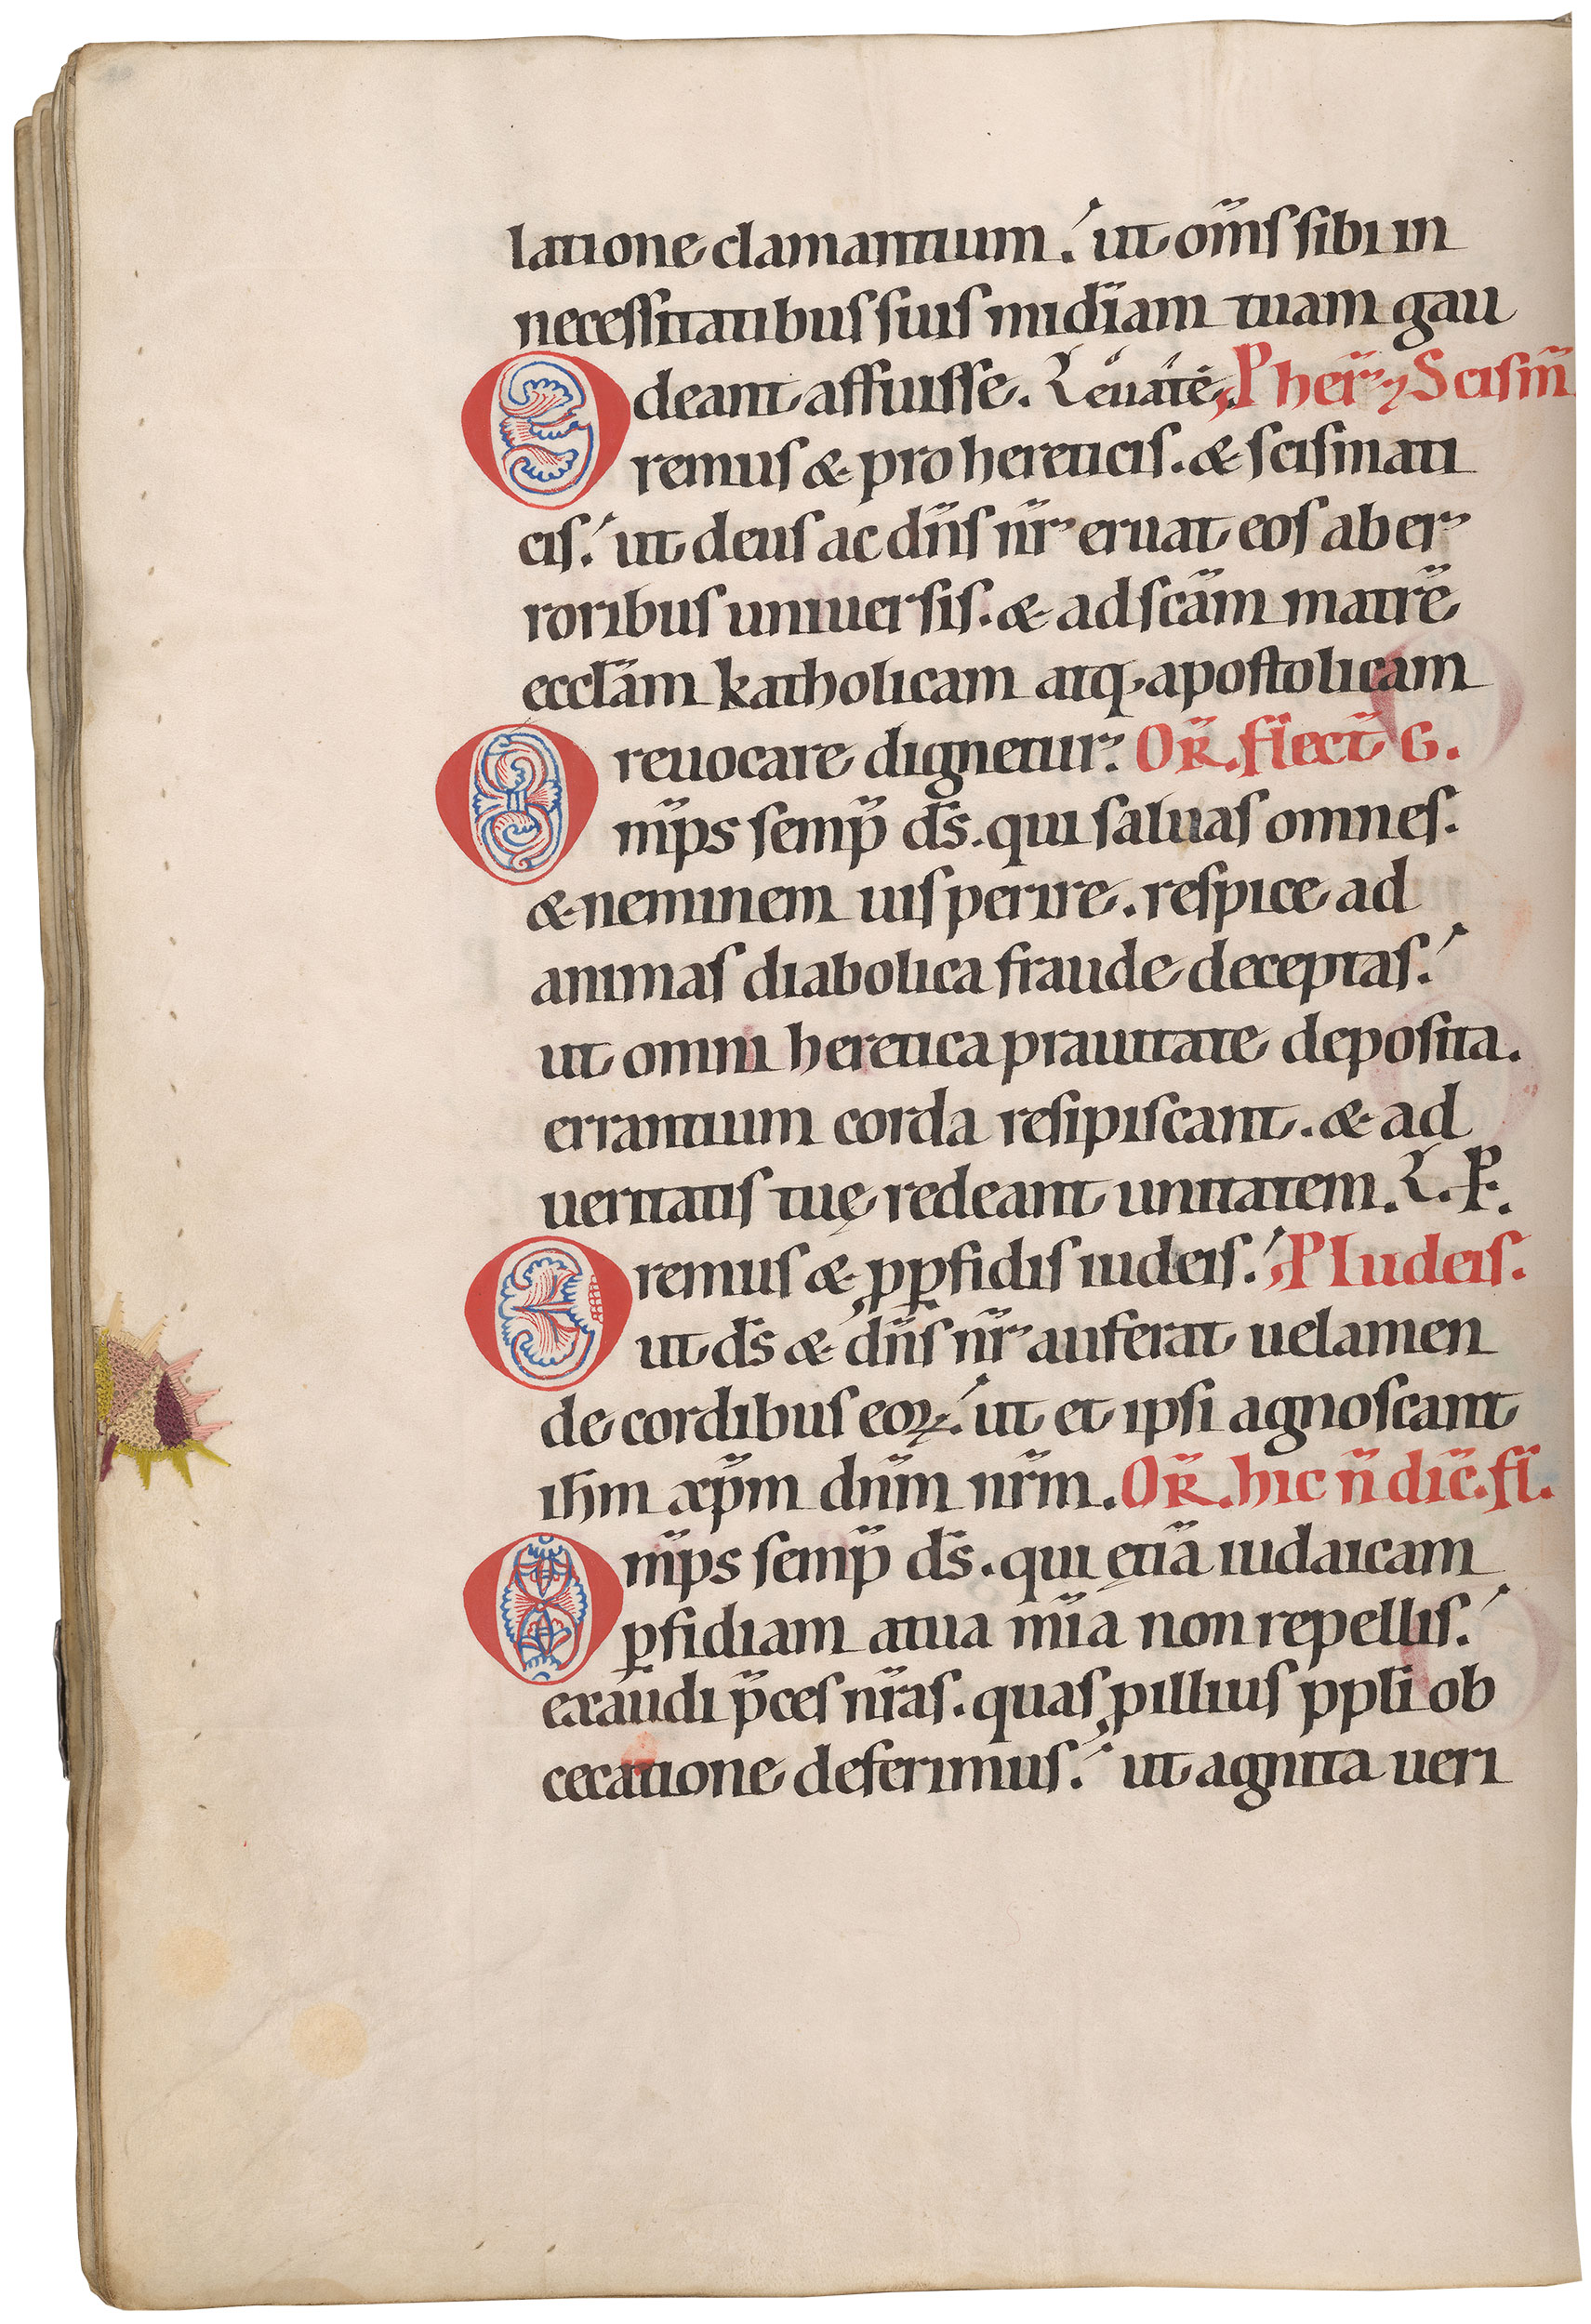 latione clamantium. ut om̅s sibi in
necessitatibus suis mið̅iam tuam gau
deant affuisse. Leuate. P her̅ ⁊ Scism̅
Oremus & pro hereticis. & scismati
cis. ut deus ac dn̅s nr̅ eruat eos ab er
roribus uniuersis. & ad scam̅ matre̅
eccla̅m katholicam atq; apostolicam
reuocare dignetur. OR̅. flect̅ G.
Om̅ps semp̅ ds̅. qui saluas omnes.
& neminem uis perire. respice ad
animas diabolica fraude deceptas.
ut omni heretica prauitate deposita.
errantium corda resipiscant. & ad
ueritatis tuę redeant unitatem. L. P.
Oremus & ꝓ ꝑfidis iudeis. P Iudeis.
ut ds̅ & dn̅s nr̅ auferat uelamen
de cordibus eoꝝ. ut et ipsi agnoscant
ihm̅ xp̅m dn̅m nr̅m. OR̅. hic n̅ dic̅. fl̅.
Om̅ps semp̅ ds̅. qui ętia̅ iudaicam
ꝑfidiam a tua mi̅a non repellis.
exaudi p̅ces nr̅as. quas ꝓ illius ppli̅ ob
cecatione deferimus. ut agnita ueri